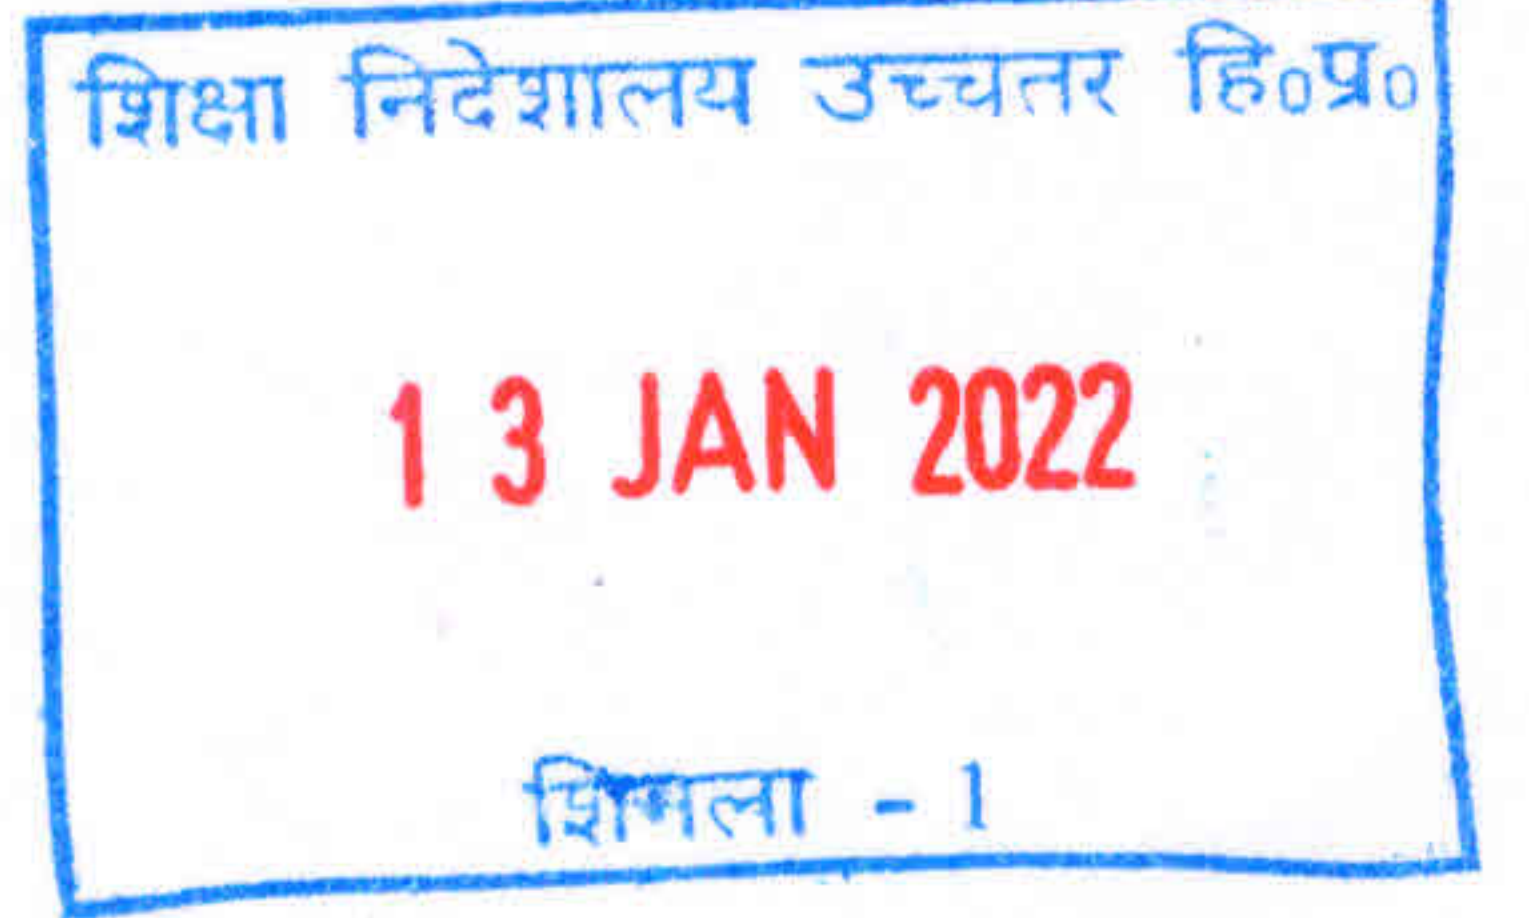 शिक्षा निदेशालय उच्चतर हि०प्र०
13 JAN 2022
शिमला - 1